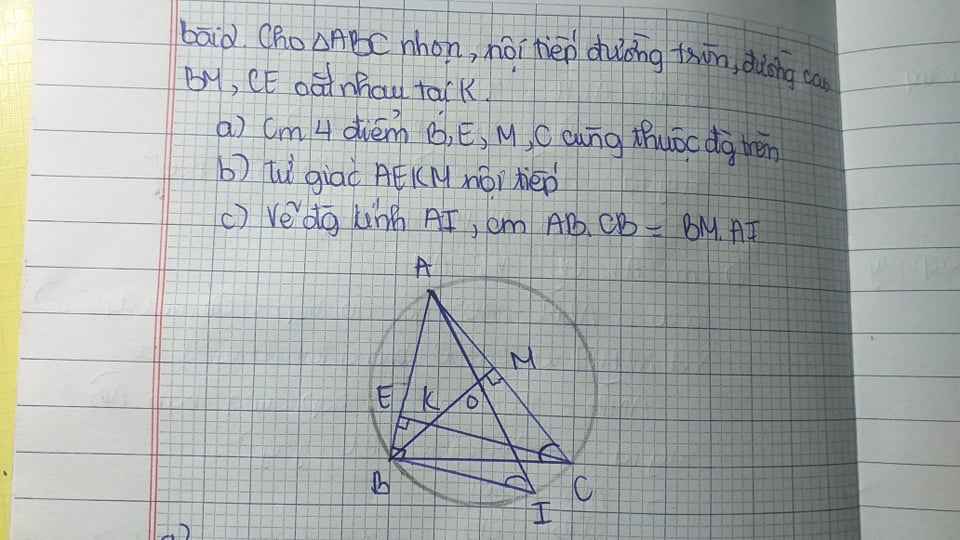 bài 2. Cho △ABC nhọn, nội tiếp đường tròn, đường cao
BM, CE cắt nhau tại K.
a) Cm 4 điểm B, E, M, C cùng thuộc đg tròn
b) Tứ giác AEKM nội tiếp
c) Vẽ đg kính AI, cm AB. CB = BM. AI
A
M
E K O
B
C
I
a)